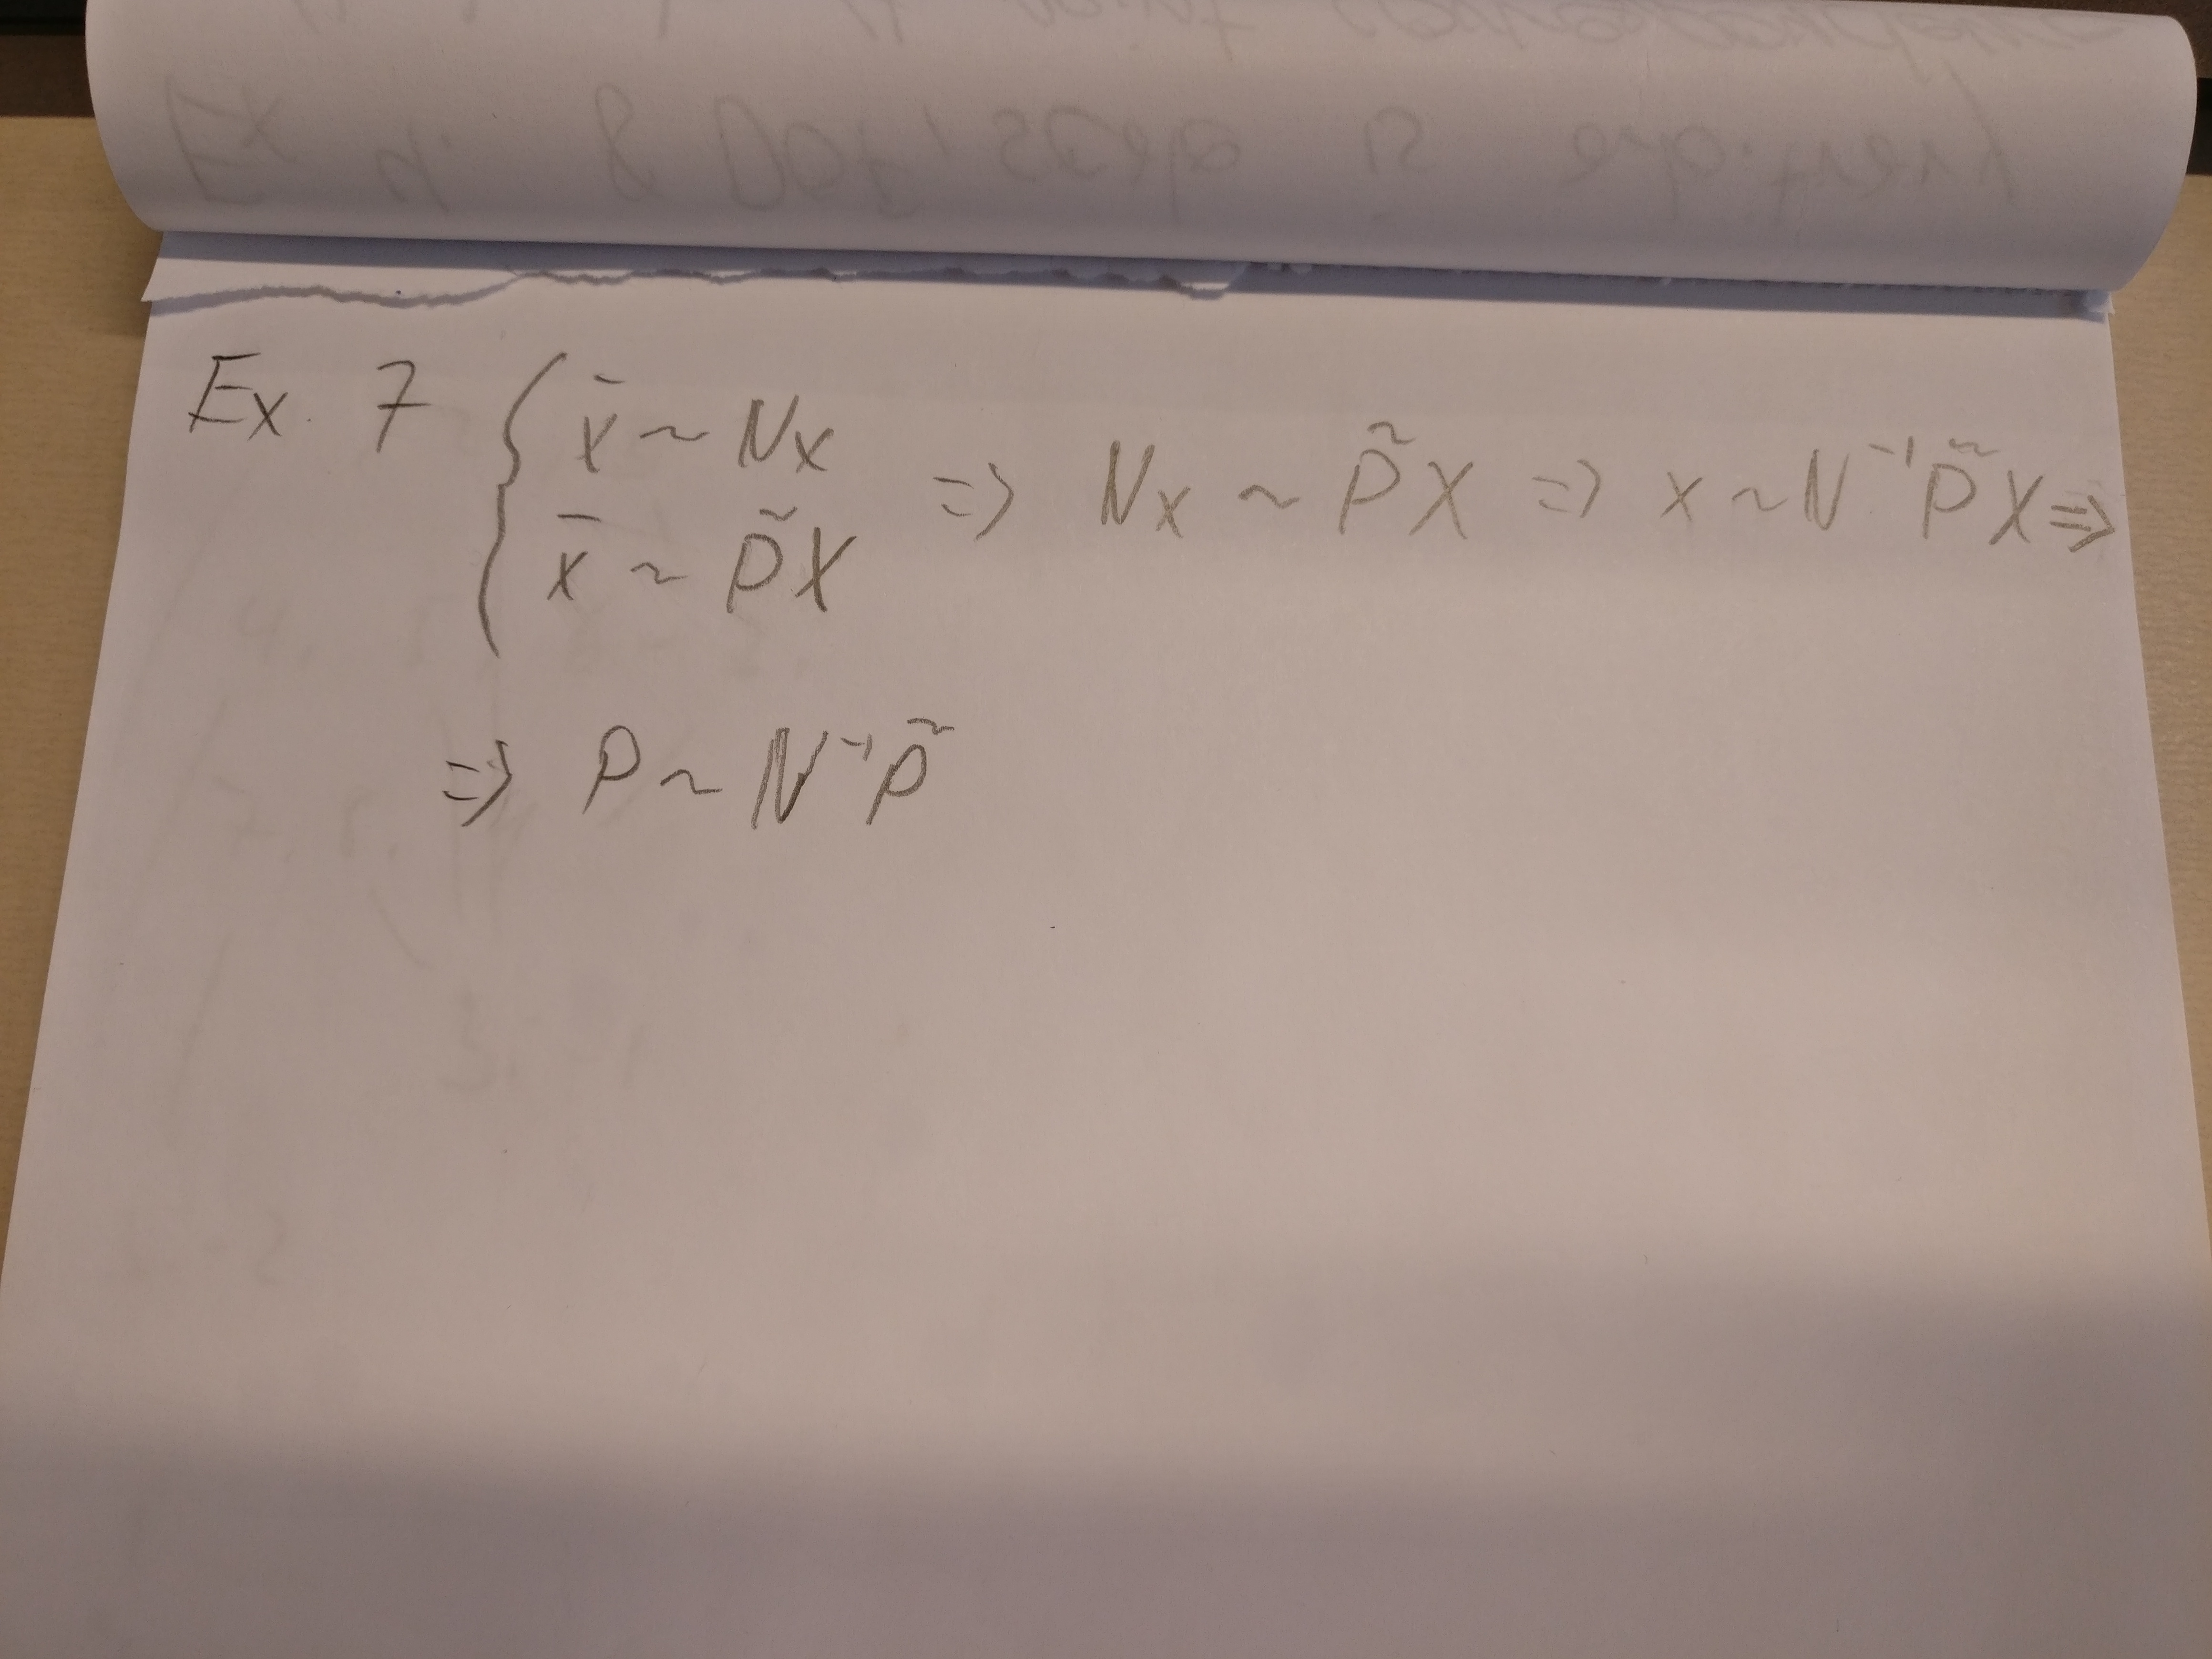 Ex. 7 { x̄ ~ Nx
x̄ ~ P̃X => Nx ~ P̃X => x ~ N⁻¹P̃X =>
=> P ~ N⁻¹P̃